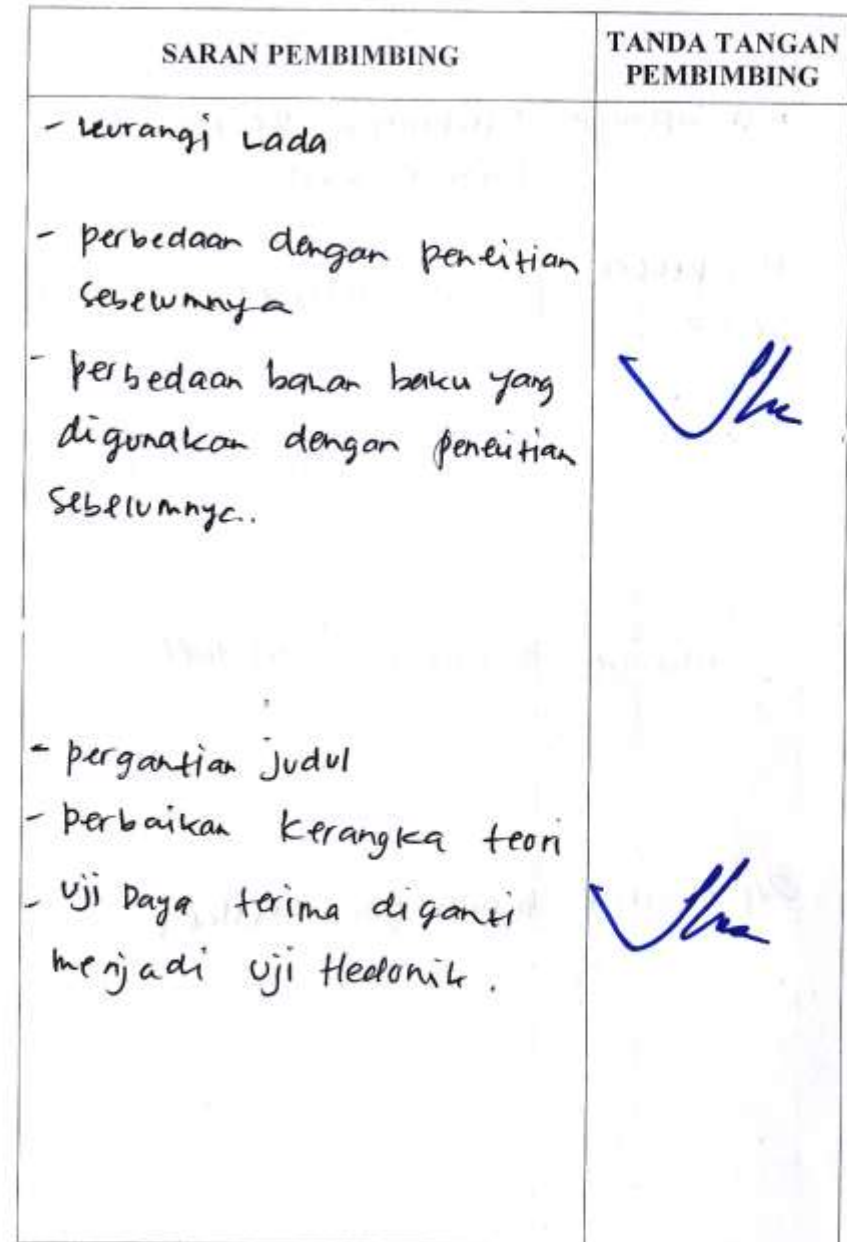 SARAN PEMBIMBING
TANDA TANGAN
PEMBIMBING
- kurangi Lada
- perbedaan dengan penelitian
sebelumnya
- perbedaan bahan baku yang
digunakan dengan penelitian
sebelumnya.
- pergantian judul
- perbaikan kerangka teori
- uji Daya terima diganti
menjadi uji Hedonik.